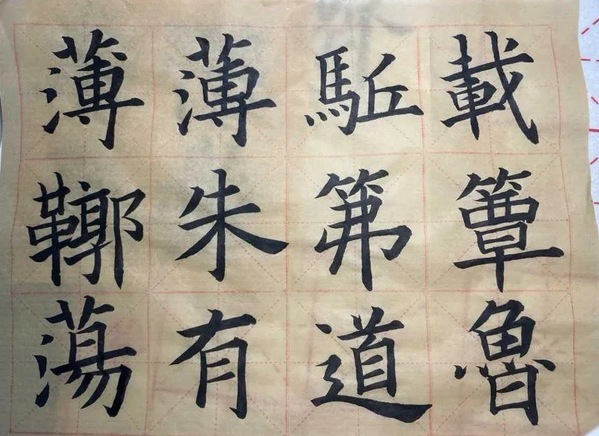 載駈薄薄
簟笰朱鞹
魯道有蕩